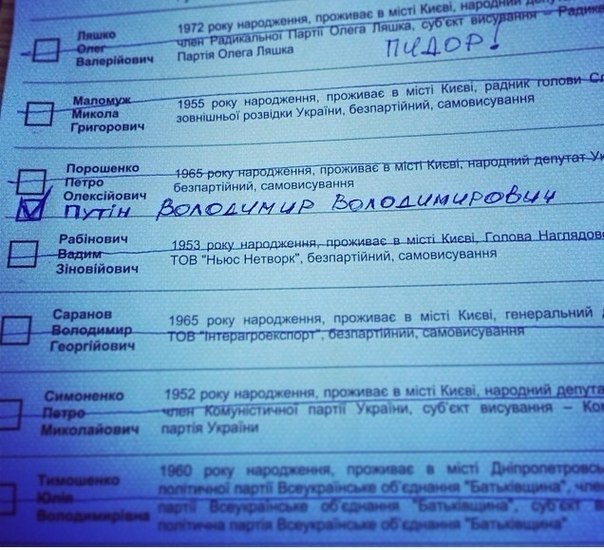 Ляшко
Олег
Валерійович
1972 року народження, проживає в місті Києві, народний
член Радикальної Партії Олега Ляшка, суб'єкт висування –
Партія Олега Ляшка
ПИДОР!
Маломуж
Микола
Григорович
1955 року народження, проживає в місті Києві, радник голови
зовнішньої розвідки України, безпартійний, самовисування
Порошенко
Петро
Олексійович
1965 року народження, проживає в місті Києві, народний депутат
безпартійний, самовисування
Путін Володимир Володимирович
Рабінович
Вадим
Зіновійович
1953 року народження, проживає в місті Києві, Голова
ТОВ "Ньюс Нетворк", безпартійний, самовисування
Саранов
Володимир
Георгійович
1965 року народження, проживає в місті Києві, генеральний
ТОВ "Інтерагроекспорт", безпартійний, самовисування
Симоненко
Петро
Миколайович
1952 року народження, проживає в місті Києві, народний
член Комуністичної партії України, суб'єкт висування –
партія України
Тимошенко
Юлія
Володимирівна
1960 року народження, проживає в місті
політичної партії Всеукраїнське об'єднання "Батьківщина",
партії Всеукраїнське об'єднання "Батьківщина", суб'єкт
політична партія Всеукраїнське об'єднання "Батьківщина"